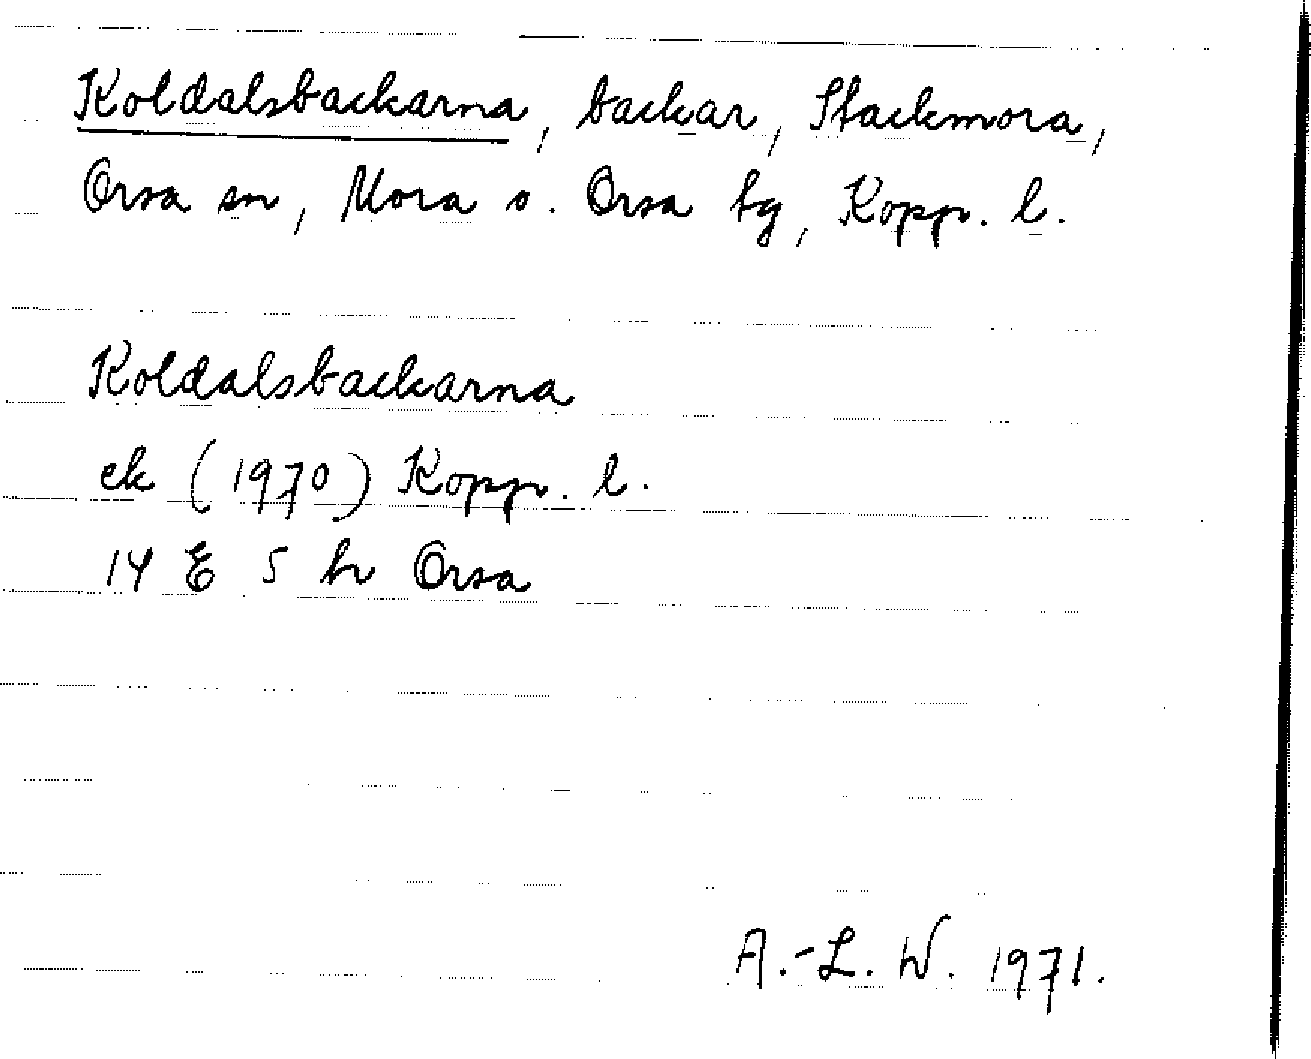 Koldalsbackarna, backar, Stackmora,
Orsa sn, Mora o. Orsa tg, Kopp. l.
Koldalsbackarna
ek (1970) Kopp. l.
14 E 5 h Orsa
A.-L. W. 1971.